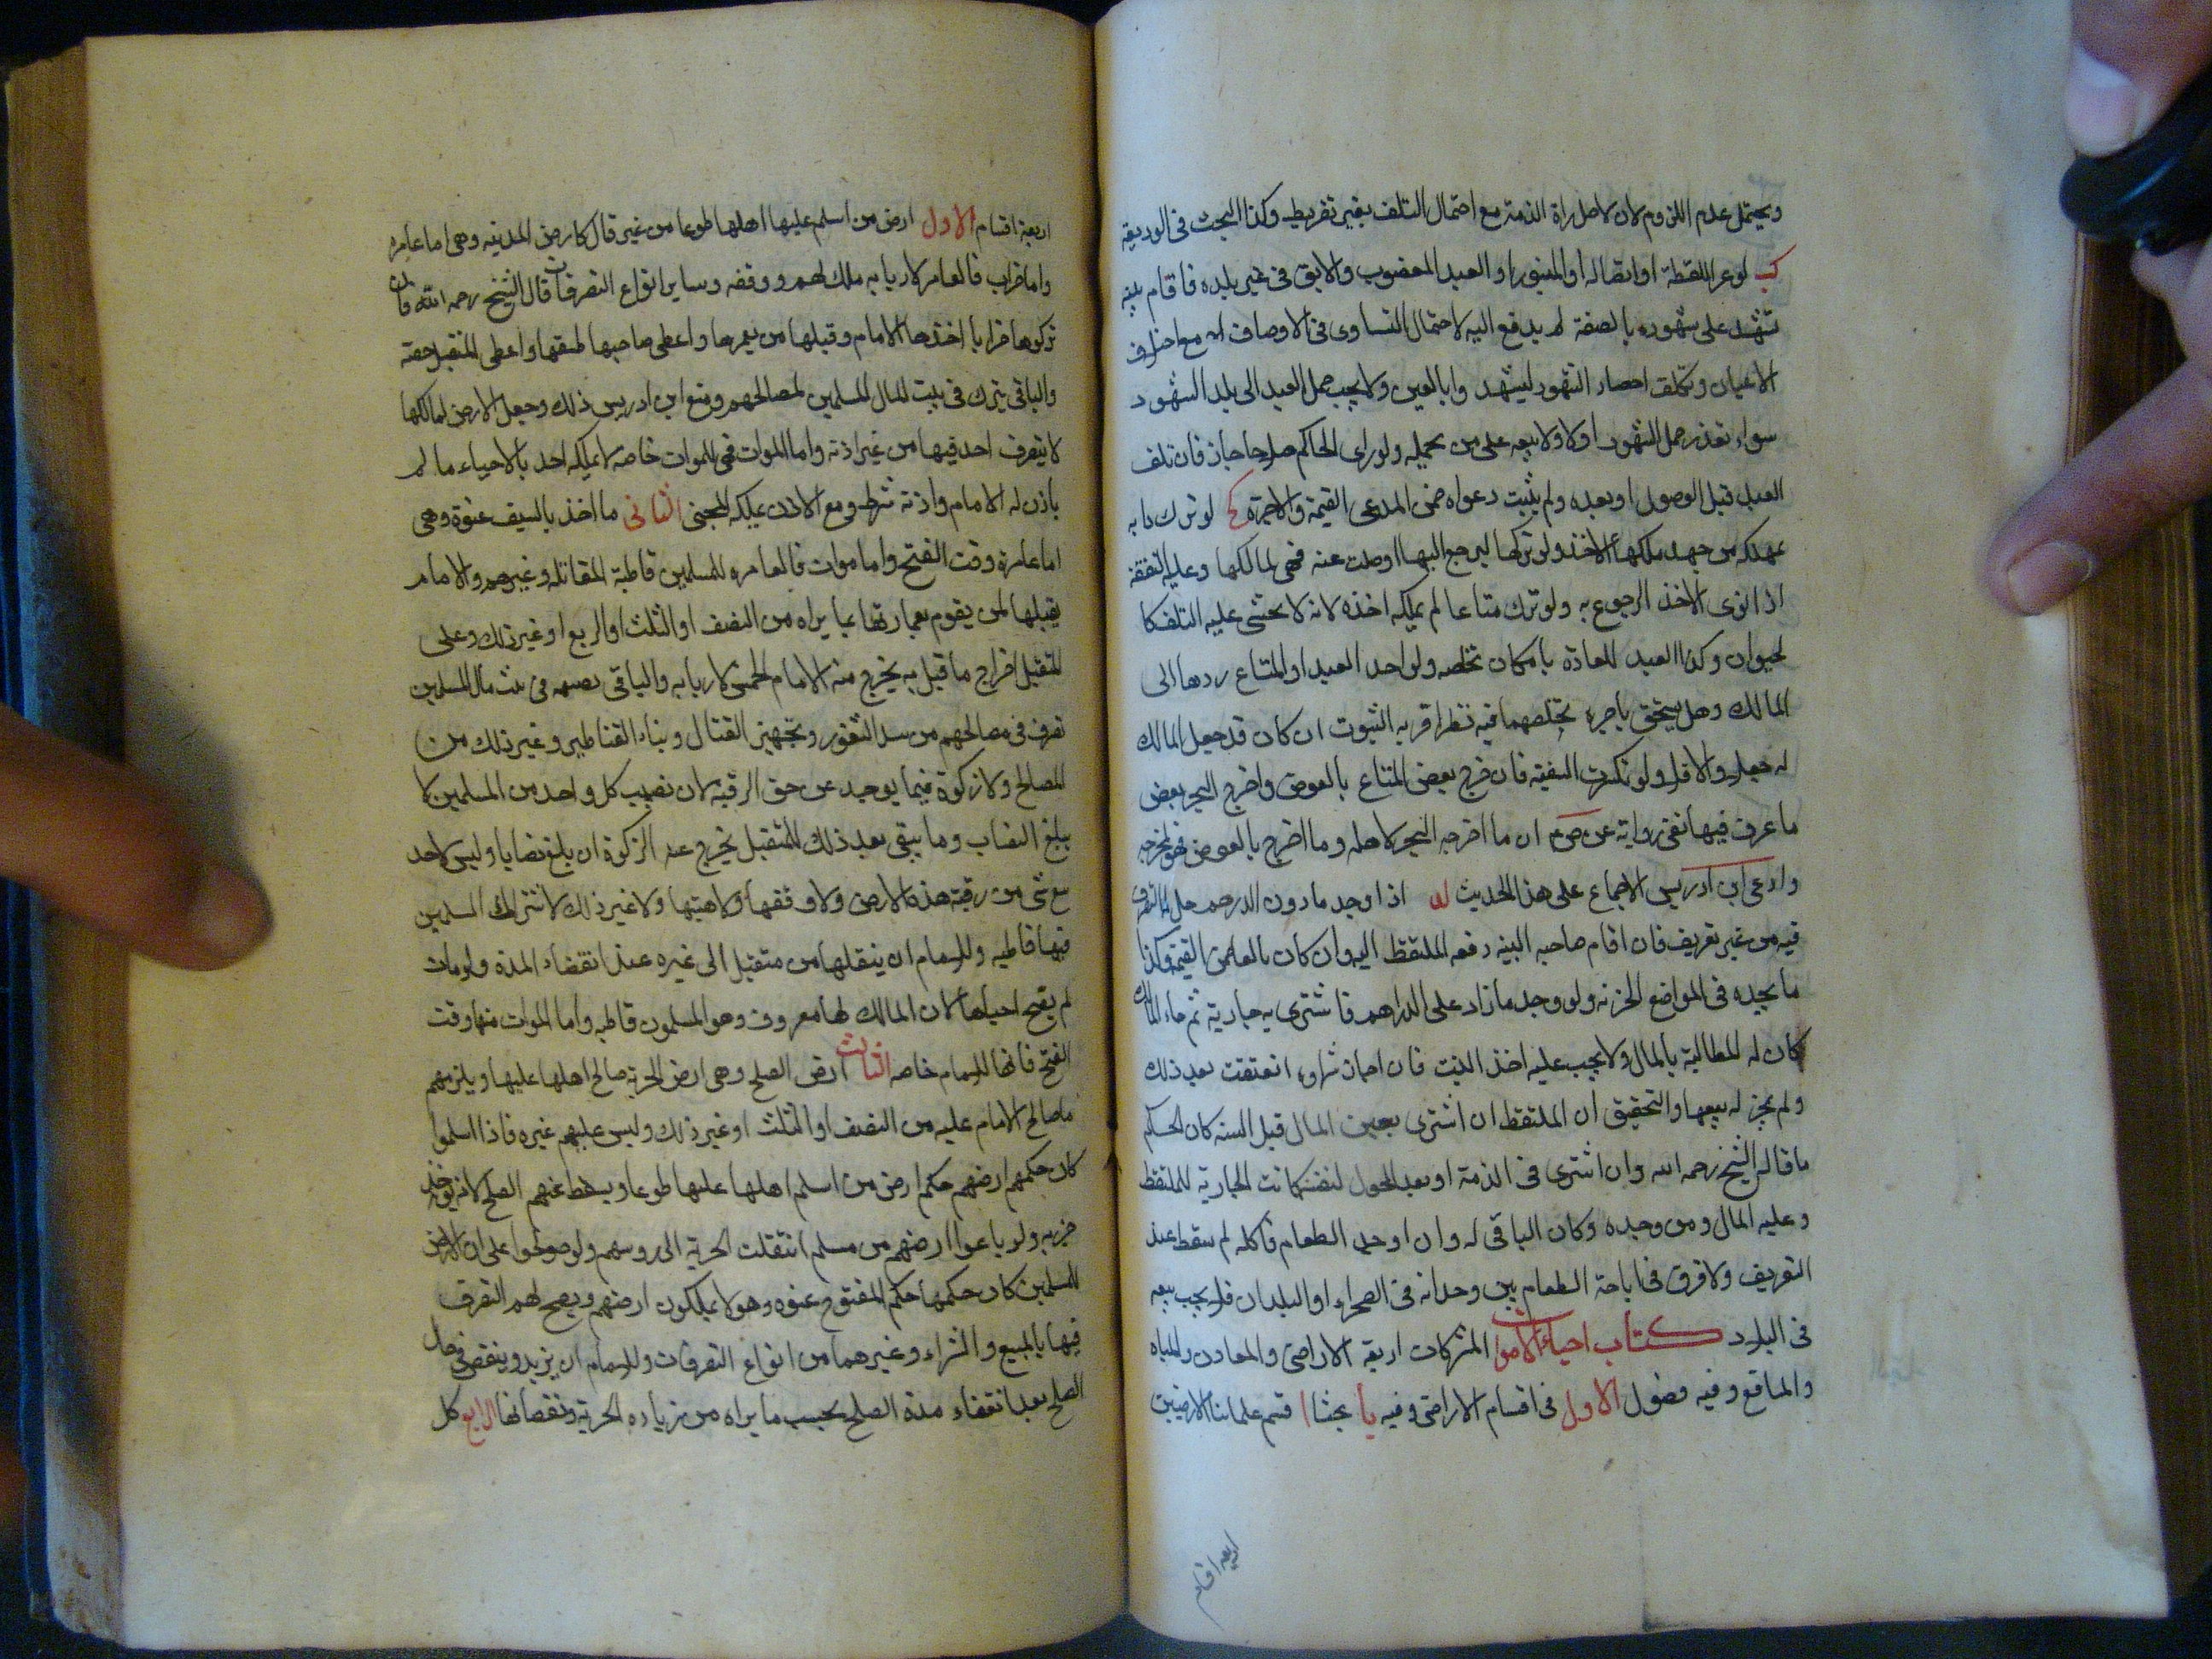 ويحتمل عدم اللزوم لان الاصل براة الذمة مع احتمال التلف بغير تفريط وكذا البحث في الوديعة
كب لو عر اللقطة او ابتقاله او العبد المغصوب والابق في غير بلده فاقام بينه
تشهد على شهوده بالصفة لم يدفع اليه لاحتمال التساوى في الاوصاف مع اختلاف
الاعيان وتكلف احصار الشهود ليشهدوا بالعين ولا يجب حمل العبد الى بلد الشهود
سواء تعذر حمل الشهود اولا ولا بيعه على من يحمله ولو راى الحاكم صلاحا جاز فان تلف
العبد قبل الوصول او بعده ولم يثبت دعواه ضمن المدعى القيمة والاجرة لو ترك دابه
بمهلكه من جهد ملكها الاخذ ولو تركها ليرجع اليها اوضلت عنه فهى لمالكها وعليه النفقه
اذا نوى الاخذ الرجوع به ولو ترك متاعا لم يملكه اخذه لانه لا يخشى عليه التلف كا
لحيوان وكذا العبد للعادة بامكان تخلصه ولو اخذ العبد او المتاع ردها الى
المالك وهل يستحق باجرة تخلصهما فيه نظر اقربه الثبوت ان كان قد جعل المالك
له جعلا والا فلا ولو تكسرت السفينه فان خرج بعض المتاع بالغوص واخرج البحر بعض
ما عرف فيها نفى رواية عن ص م ان ما اخرجه البحر لاهله وما اخرج بالغوص فهو لمخرجه
وادعى ابن ادريس الاجماع على هذا الحديث لد اذا وجد ما دون الدرهم حل له التصرف
فيه من غير تعريف فان اقام صاحبه البينه دفعه الملتقط اليه وان كان تالفا ضمن القيمة وكذا
ما يجده في المواضع الخربه ولو وجد ما زاد على الدراهم فاشترى به جارية ثم جاء المالك
كان له المطالبة بالمال ولا يجب عليه اخذ البنت فان اجاز شراءه انعتقت بعد ذلك
ولم يجز له بيعها والتحقيق ان الملتقط ان اشترى بعين المال قبل السنه كان الحكم
ما قاله الشيخ رحمه الله وان اشترى في الذمة او بعد الحول لنفسه كانت الجارية للملتقط
وعليه المال ومن وجده وكان الباقى له وان اوجد الطعام فاكله لم يسقط عنه
التعريف ولا فرق في اباحة الطعام بين وجدانه في الصحراء او البلدان فلا يجب بيعه
في البلاد كتاب احياء الاموات المشركات اربعة الاراضى والمعادن والمياه
والمنافع وفيه فصول الاول في اقسام الاراضى وفيه يا بحثا ا قسم علماءنا الارضين
اربعة اقسام
اربعة اقسام الاول ارض من اسلم عليها اهلها طوعا من غير قتال كارض المدينه وهى اما عامره
واما خراب فالعامر لاربابه ملك لهم ووقفه وساير انواع التصرفات قال الشيخ رحمه الله فان
تركوها خرابا اخذها الامام وقبلها من يعمرها واعطى صاحبها طسقها واعطى المتقبل حصته
والباقى يترك في بيت المال للمسلمين لمصالحهم ومنع ابن ادريس ذلك وجعل الارض لمالكها
لا يتصرف احد فيها من غير اذنه واما الموات فهى للموات خاصه لا يملكه احد بالاحياء ما لم
ياذن له الامام واذنه شرط ومع الاذن يملكه المحيى الثانى ما اخذ بالسيف عنوة وهى
اما عامرة وقت الفتح واما موات فالعامره للمسلمين قاطبة المقاتله وغيرهم والامام
يقبلها لمن يقوم بعمارتها بما يراه من النصف او الثلث او الربع او غير ذلك وعلى
المتقبل اخراج ما قبل به يخرج منه الامام الخمس لاربابه والباقى يصرفه في بيت مال المسلمين
تصرف في مصالحهم من سد الثغور وتجهيز القتال وبناء القناطير وغير ذلك من
المصالح ولا زكوة فيما يوجد عن حق الرقبه لان نصيب كل واحد من المسلمين لا
يبلغ النصاب وما يبقى بعد ذلك للمتقبل يخرج عنه الزكوة ان بلغ نصابا وليس لاحد
بيع شى من رقبة هذه الارض ولا وقفها ولا هبتها ولا غير ذلك لاشتراك المسلمين
فيها قاطبه وللامام ان ينقلها من متقبل الى غيره عند انقضاء المدة ولو ماتت
لم يصح احياها لان المالك لها معروف وهو المسلمون قاطبه واما الموات منها وقت
الفتح فانها للامام خاصه الثالث ارض الصلح وهى ارض الجزية صالح اهلها عليها ويلزمهم
ما صالح الامام عليه من النصف او الثلث او غير ذلك وليس عليهم غيره فاذا اسلموا
كان حكمهم ارضهم حكم ارض من اسلم اهلها عليها طوعا ويسقط عنهم الصلح لانه يؤخذ
جزيه ولو باعوا ارضهم من مسلم انتقلت الجزية الى روسهم ولو صولحوا على ان الارض
للمسلمين كان حكمها حكم المفتوح عنوه وهولا يملكون ارضهم ويصح لهم التصرف
فيها بالبيع والشراء وغيرهما من انواع التصرفات وللامام ان يزيد وينقص في مال
الصلح بعد انقضاء مدة الصلح بحسب ما يراه من زياده الجزية ونقصانها الرابع كل